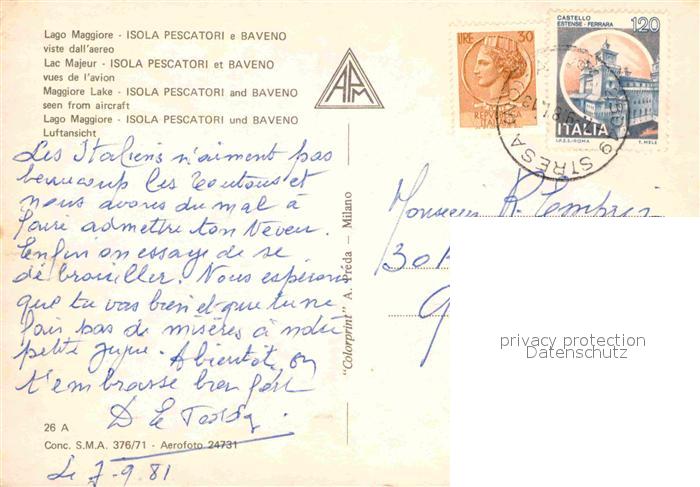 Lago Maggiore - ISOLA PESCATORI e BAVENO
viste dall'aereo
Lac Majeur - ISOLA PESCATORI et BAVENO
vues de l'avion
Maggiore Lake - ISOLA PESCATORI and BAVENO
seen from aircraft
Lago Maggiore - ISOLA PESCATORI und BAVENO
Luftansicht
APM
LIRE 30
REPVBBLICA ITALIANA
CASTELLO
ESTENSE - FERRARA
120
ITALIA
I.P.Z.S.-ROMA T. MELE
STRESA
Les Italiens n'aiment pas
beaucoup les toutous et
nous avons du mal à
faire admettre ton neveu.
Enfin on essaye de se
débrouiller. Nous espérons
que tu vas bien et que tu ne
fais pas de misères à notre
petite . A bientôt, on
t'embrasse bien fort
D
26 A
Conc. S.M.A. 376/71 - Aerofoto 24731
Le 7-9.81
"Colorprint" A. Préda - Milano
Monsieur R.
privacy protection
Datenschutz